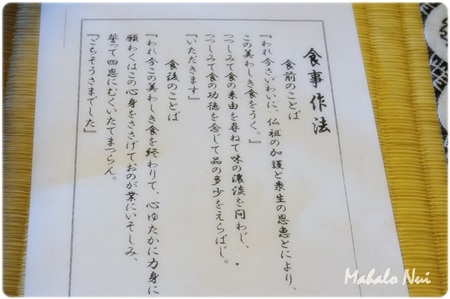 食事作法
食前のことば
『われ今さいわいに、仏祖の加護と衆生の恩恵とにより、
この美わしき食をうく。
つつしみて食の来由を尋ねて味の濃淡を問わじ、
つつしみて食の功徳を念じて品の多少をえらばじ。
『いただきます』
食後のことば
『われ今この美わしき食を終わりて、心ゆたかに力身に
願わくはこの心身をささげておのが業にいそしみ、
誓って四恩にむくいたてまつらん。
『ごちそうさまでした』
Mahalo Nui